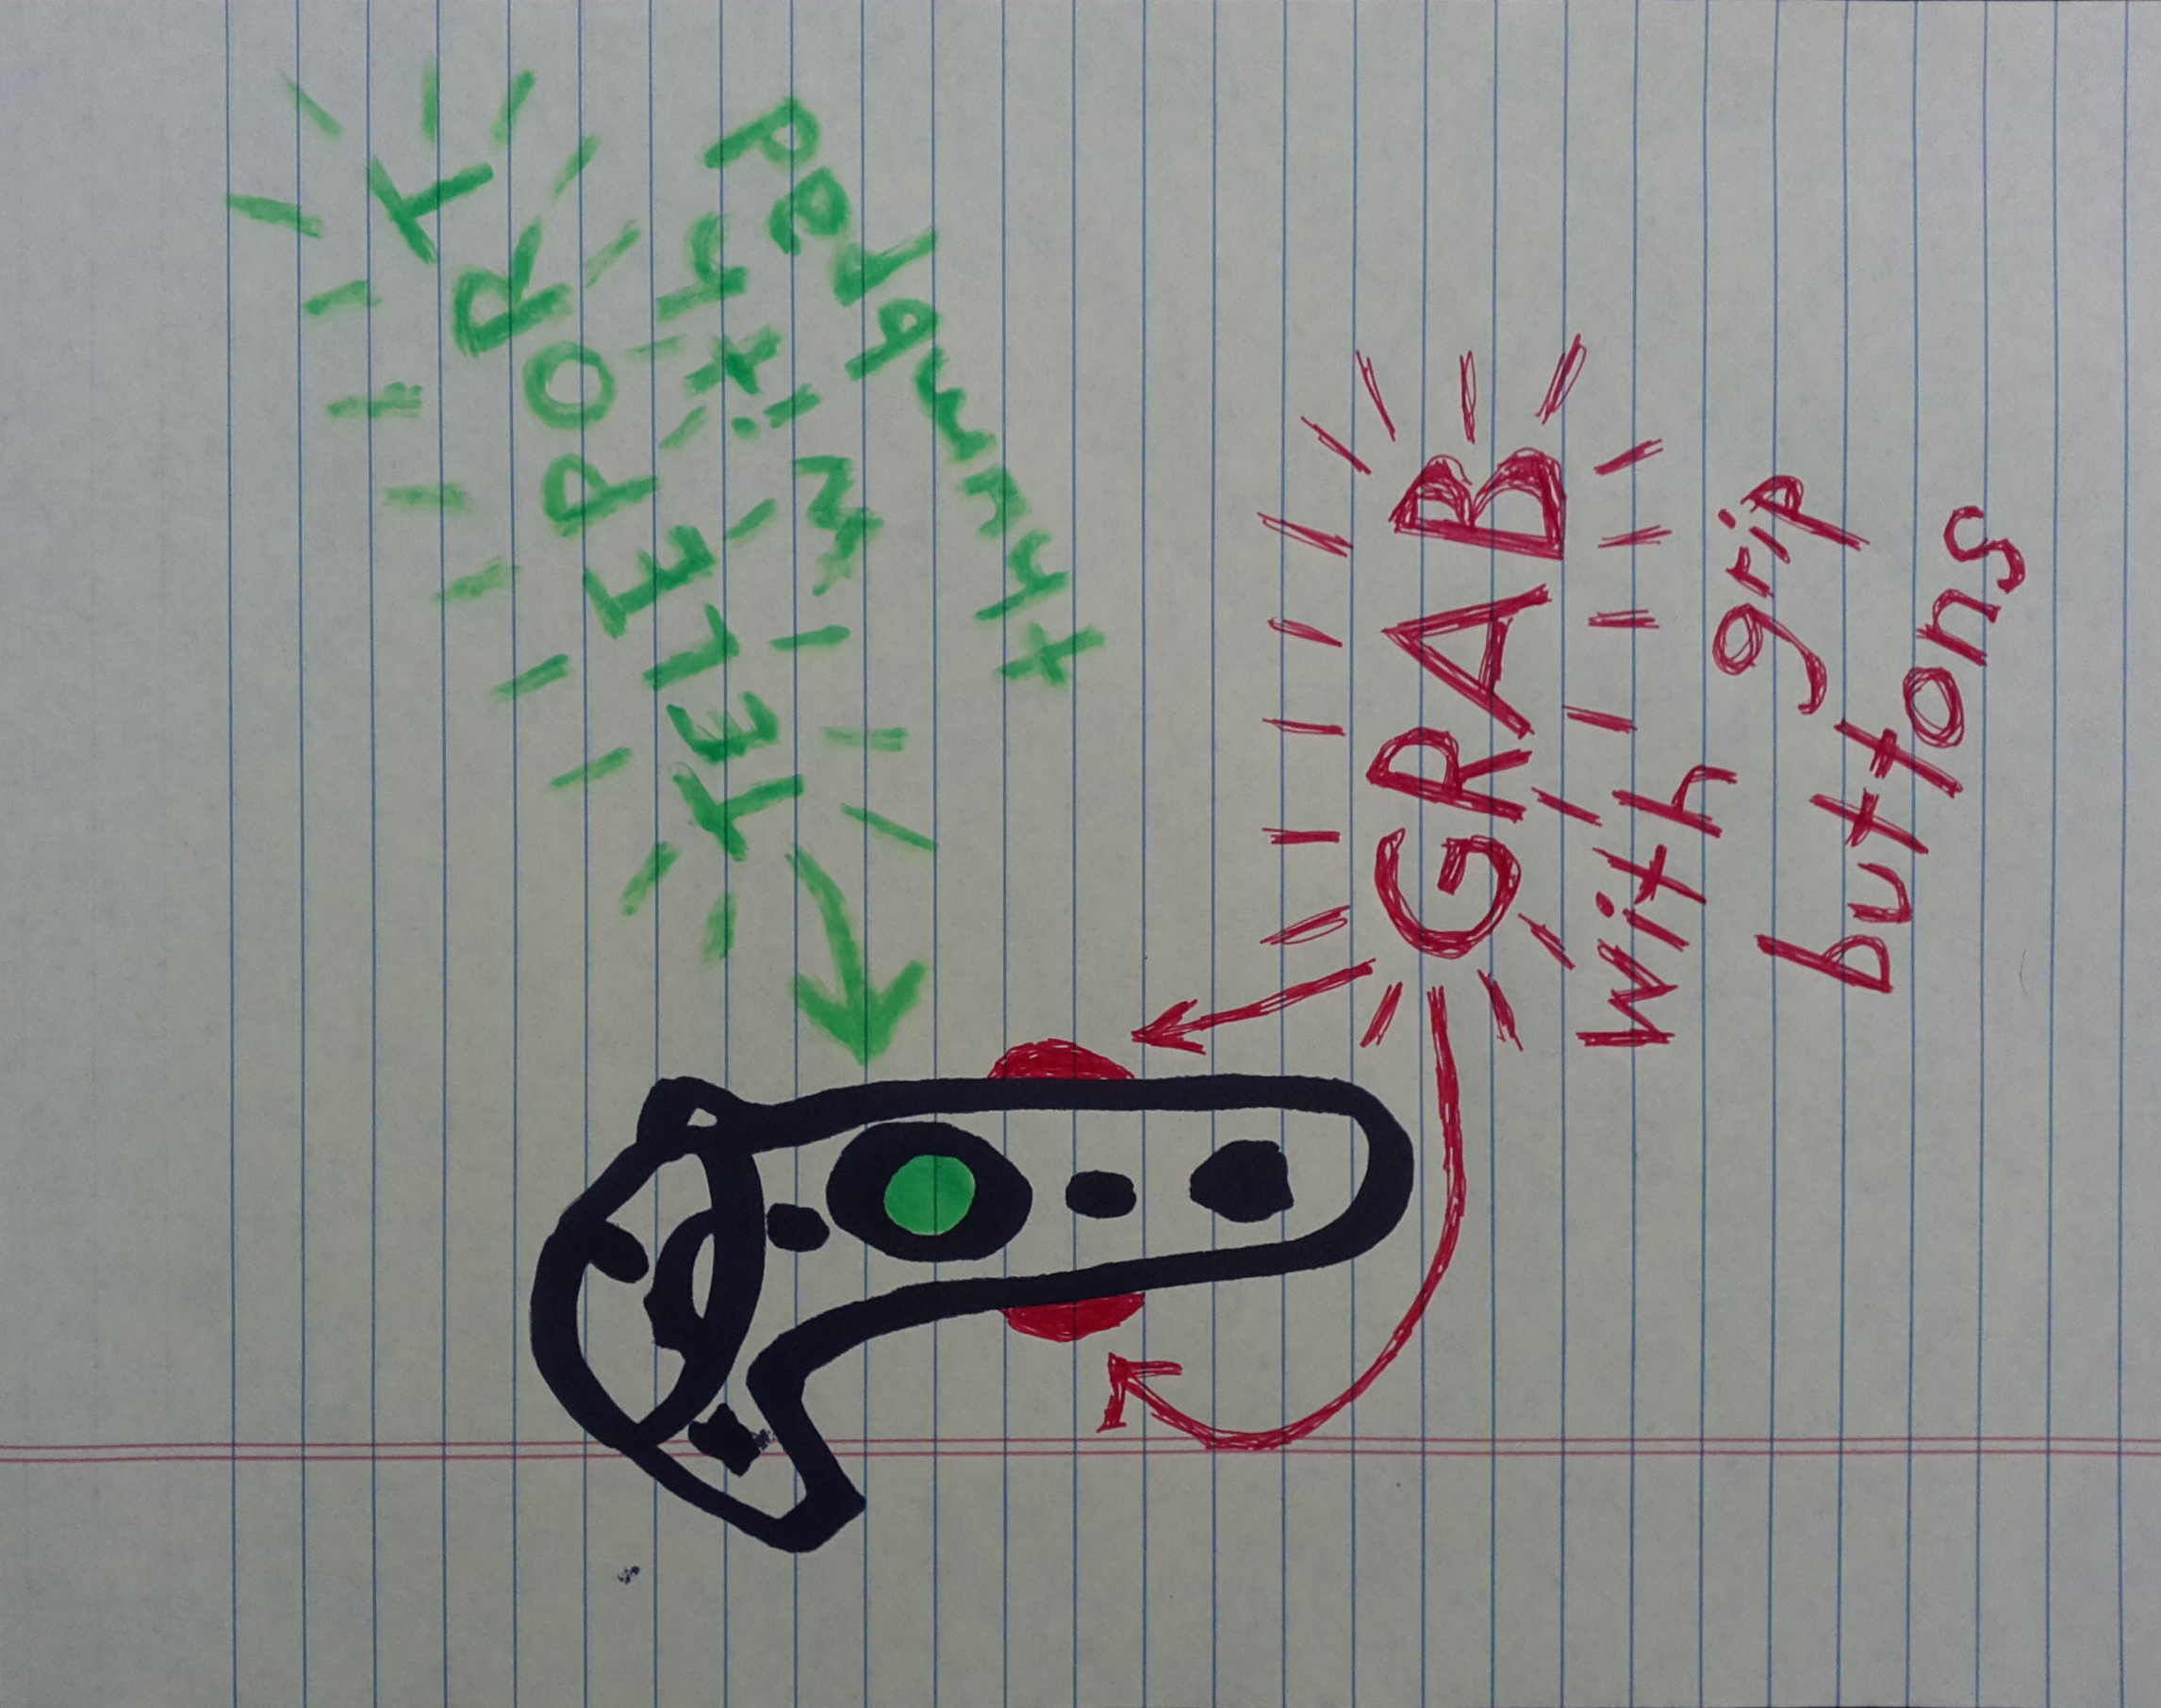 TELEPORT
with
thumbpad
GRAB
with grip
buttons